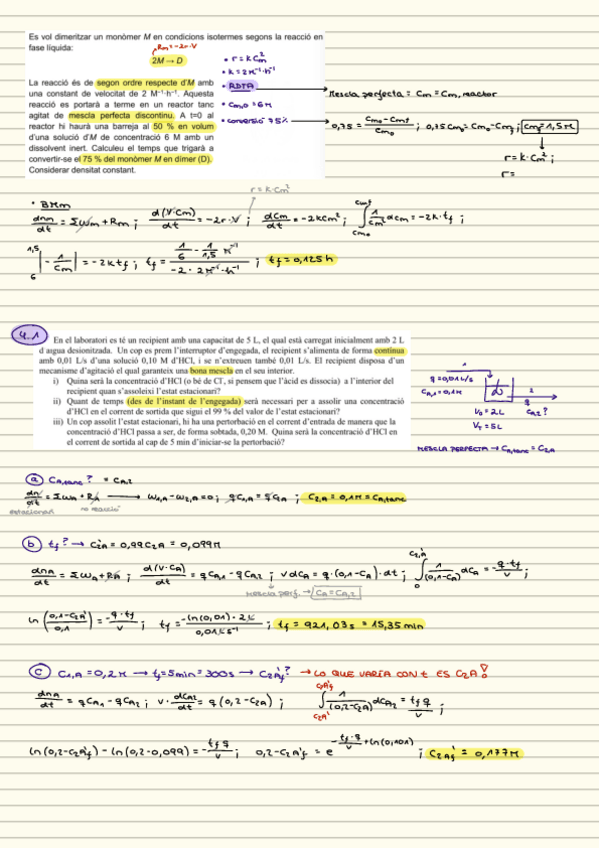 Es vol dimeritzar un monòmer M en condicions isotermes segons la reacció en
fase líquida:
Rm = -2r·V
2M → D
La reacció és de segon ordre respecte d'M amb
una constant de velocitat de 2 M⁻¹·h⁻¹. Aquesta
reacció es portarà a terme en un reactor tanc
agitat de mescla perfecta discontinu. A t=0 al
reactor hi haurà una barreja al 50 % en volum
d'una solució d'M de concentració 6 M amb un
dissolvent inert. Calculeu el temps que trigarà a
convertir-se el 75 % del monòmer M en dímer (D).
Considerar densitat constant.
• r = k Cm²
• k = 2M⁻¹·h⁻¹
• RDTA → Mescla perfecta = Cm = Cm, reactor
• Cm,0 = 6M
• conversió 75% → 0,75 = (Cmo - Cmf)/Cmo ; 0,75 Cmo = Cmo - Cmf ; Cmf = 1,5M
r = k·Cm² ;
r =
r = k·Cm²
• BMm
dnm/dt = Σwm + Rm ; d(V·Cm)/dt = -2r·V ; dCm/dt = -2kCm² ; ∫Cmo Cmf 1/Cm² dCm = -2k·tf ;
1,5 6 |-1/Cm| = -2ktf ; tf = (1/6 - 1/1,5 M⁻¹)/(-2·2M⁻¹·h⁻¹) ; tf = 0,125h
4.1
En el laboratori es té un recipient amb una capacitat de 5 L, el qual està carregat inicialment amb 2 L
d aigua desionitzada. Un cop es prem l'interruptor d'engegada, el recipient s'alimenta de forma contínua
amb 0,01 L/s d'una solució 0,10 M d'HCl, i se n'extreuen també 0,01 L/s. El recipient disposa d'un
mecanisme d'agitació el qual garanteix una bona mescla en el seu interior.
i) Quina serà la concentració d'HCl (o bé de Cl⁻, si pensem que l'àcid es dissocia) a l'interior del
recipient quan s'assoleixi l'estat estacionari?
ii) Quant de temps (des de l'instant de l'engegada) serà necessari per a assolir una concentració
d'HCl en el corrent de sortida que sigui el 99 % del valor de l'estat estacionari?
iii) Un cop assolit l'estat estacionari, hi ha una pertorbació en el corrent d'entrada de manera que la
concentració d'HCl passa a ser, de forma sobtada, 0,20 M. Quina serà la concentració d'HCl en
el corrent de sortida al cap de 5 min d'iniciar-se la pertorbació?
1
q = 0,01 L/s
CA,1 = 0,1M
2
CA,2?
V0 = 2L
VT = 5L
MESCLA PERFECTA → CA,tanc = C2A
a CA,tanc? = CA,2
dn/dt = ΣwA + RA → w1,A - w2,A = 0 ; qC1,A = qC2A ; C2,A = 0,1M = CA,tanc
estacionari
no reacció
b tf? → C2A' = 0,99C2A = 0,099M
dnA/dt = ΣwA + RA ; d(V·CA)/dt = qCA,1 - qCA,2 ; VdCA = q·(0,1-CA)·dt ; ∫0 C2A' 1/(0,1-CA) dCA = -q·tf/V ;
Mescla perf. → CA = CA,2
ln((0,1-C2A')/0,1) = -q·tf/V ; tf = -ln(0,01)·2L/0,01Ls⁻¹ ; tf = 921,03s = 15,35 min
c C1,A = 0,2M → tf = 5min = 300s → C2Af'? → LO QUE VARÍA CON t ES C2A!
dnA/dt = qCA,1 - qCA,2 ; V·dCA2/dt = q(0,2-C2A) ; ∫C2A' C2Af' 1/(0,2-C2A) dCA2 = tf q/V ;
ln(0,2-C2Af') - ln(0,2-0,099) = -tf q/V ; 0,2-C2Af' = e^(-tf·q/V + ln(0,101)) ; C2Af' = 0,177M